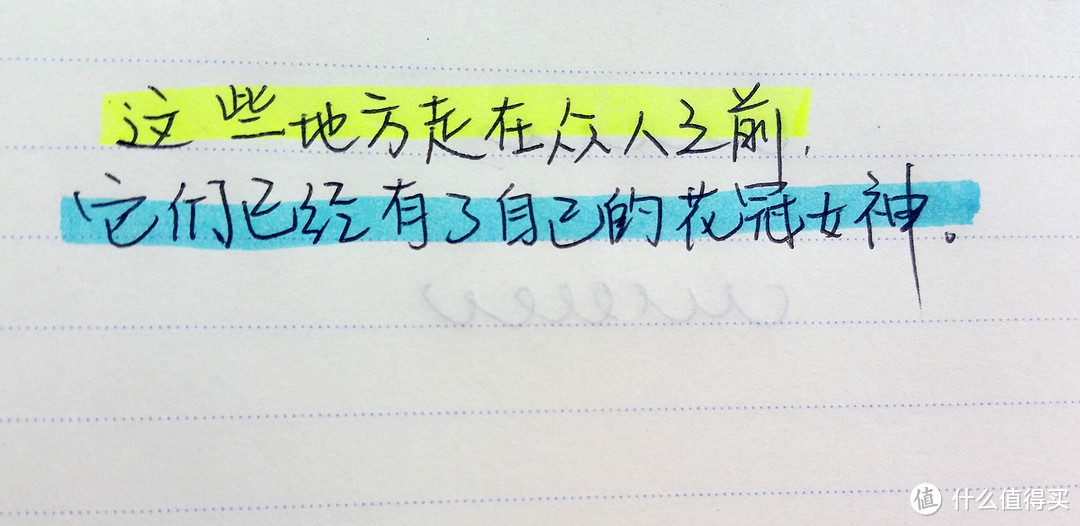 这些地方走在众人之前,
它们已经有了自己的花冠女神。
值 什么值得买